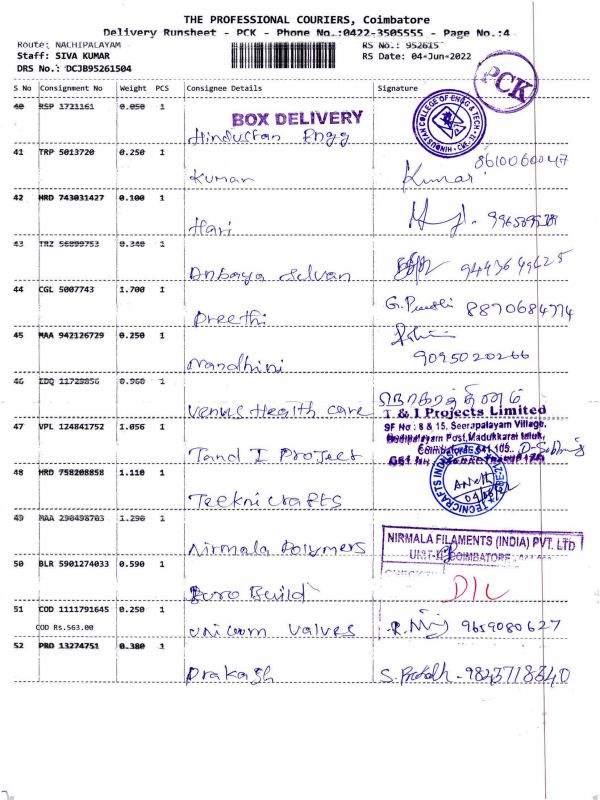 THE PROFESSIONAL COURIERS, Coimbatore
Delivery Runsheet - PCK - Phone No.:0422-3505555 - Page No.:4
Route: NACHIPALAYAM RS No.: 952615
Staff: SIVA KUMAR RS Date: 04-Jun-2022
DRS No.: DCJB95261504
PCK
S No Consignment No Weight PCS Consignee Details Signature
40 RSP 1721161 0.050 1
BOX DELIVERY
Hindustan Engg
HINDUSTAN COLLEGE OF ENGG & TECH
41 TRP 5013720 0.250 1
Kumar Kumar 8610060047
42 MRD 743031427 0.100 1
Hari
43 TRZ 56899753 0.340 1
Anbaya Selvan
44 CGL 5007743 1.700 1
Preethi G. 8870684774
45 MAA 942126729 0.250 1
Nandhini 9095020266
46 EDQ 11729856 0.960 1
Venus Health care
T & I Projects Limited
SF No : 8 & 15, Seerapalayam Village,
Post, Madukkarai taluk,
47 VPL 124841752 1.056 1
T and I Project
48 MRD 758208858 1.110 1
Teekni crafts
TECNICRAFTS
49 MAA 290498703 1.290 1
Nirmala Polymers
NIRMALA FILAMENTS (INDIA) PVT. LTD
COIMBATORE
50 BLR 5901274033 0.590 1
Euro Build D/L
51 COD 1111791645 0.250 1
COD Rs.563.00
unicorn valves 9659080627
52 PRO 13274751 0.380 1
Prakash S.